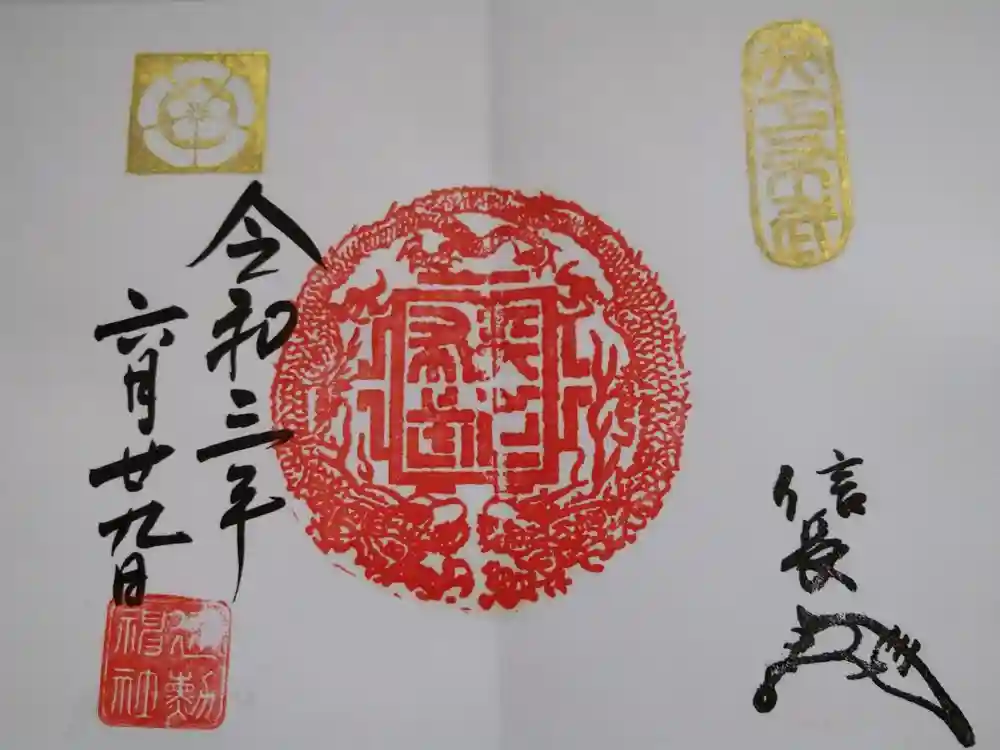 天下布武
信長
天下
布武
令和三年
六月廿九日
建勲
神社